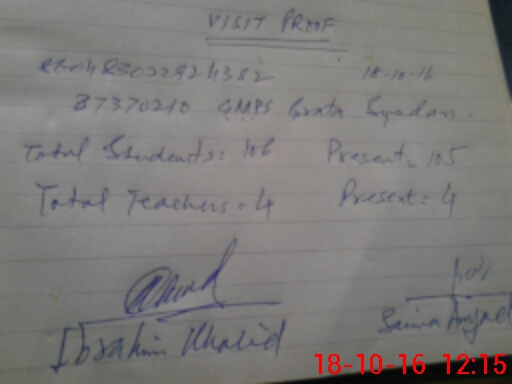 VISIT PROOF
18-10-16
37370210 GMPS Grata Syedan.
Total Students = 106 Present = 105
Total Teachers = 4 Present = 4
Ibrahim Khalid Saima Amjad
18-10-16 12:15